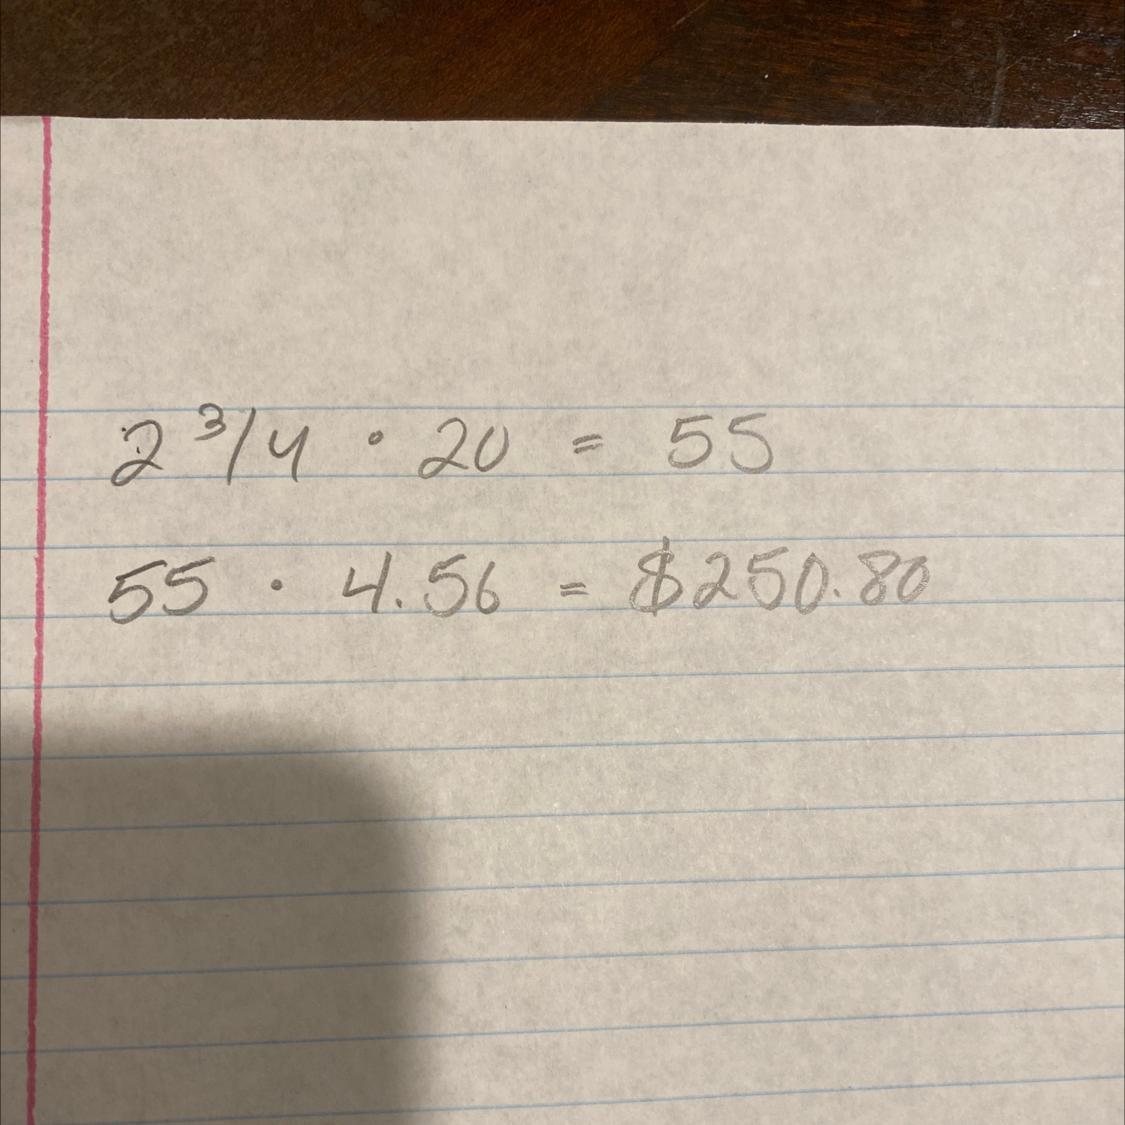 2 3/4 • 20 = 55
55 • 4.56 = $250.80